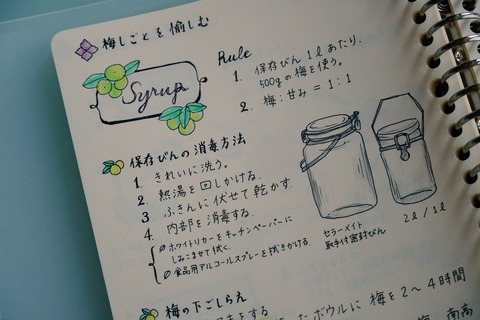 梅しごとを愉しむ
Syrup
Rule
1. 保存びん 1ℓ あたり、
500gの梅を使う。
2. 梅:甘み = 1:1
保存びんの消毒方法
1. きれいに洗う。
2. 熱湯を回しかける。
3. ふきんに伏せて乾かす
4. 内部を消毒する。
ホワイトリカーをキッチンペーパーに
しみこませて拭く。
食品用アルコールスプレーを拭きかける。
セラーメイト
取手付密封びん
2ℓ / 1ℓ
梅の下ごしらえ
をする
たボウルに 梅を2〜4時間
南高